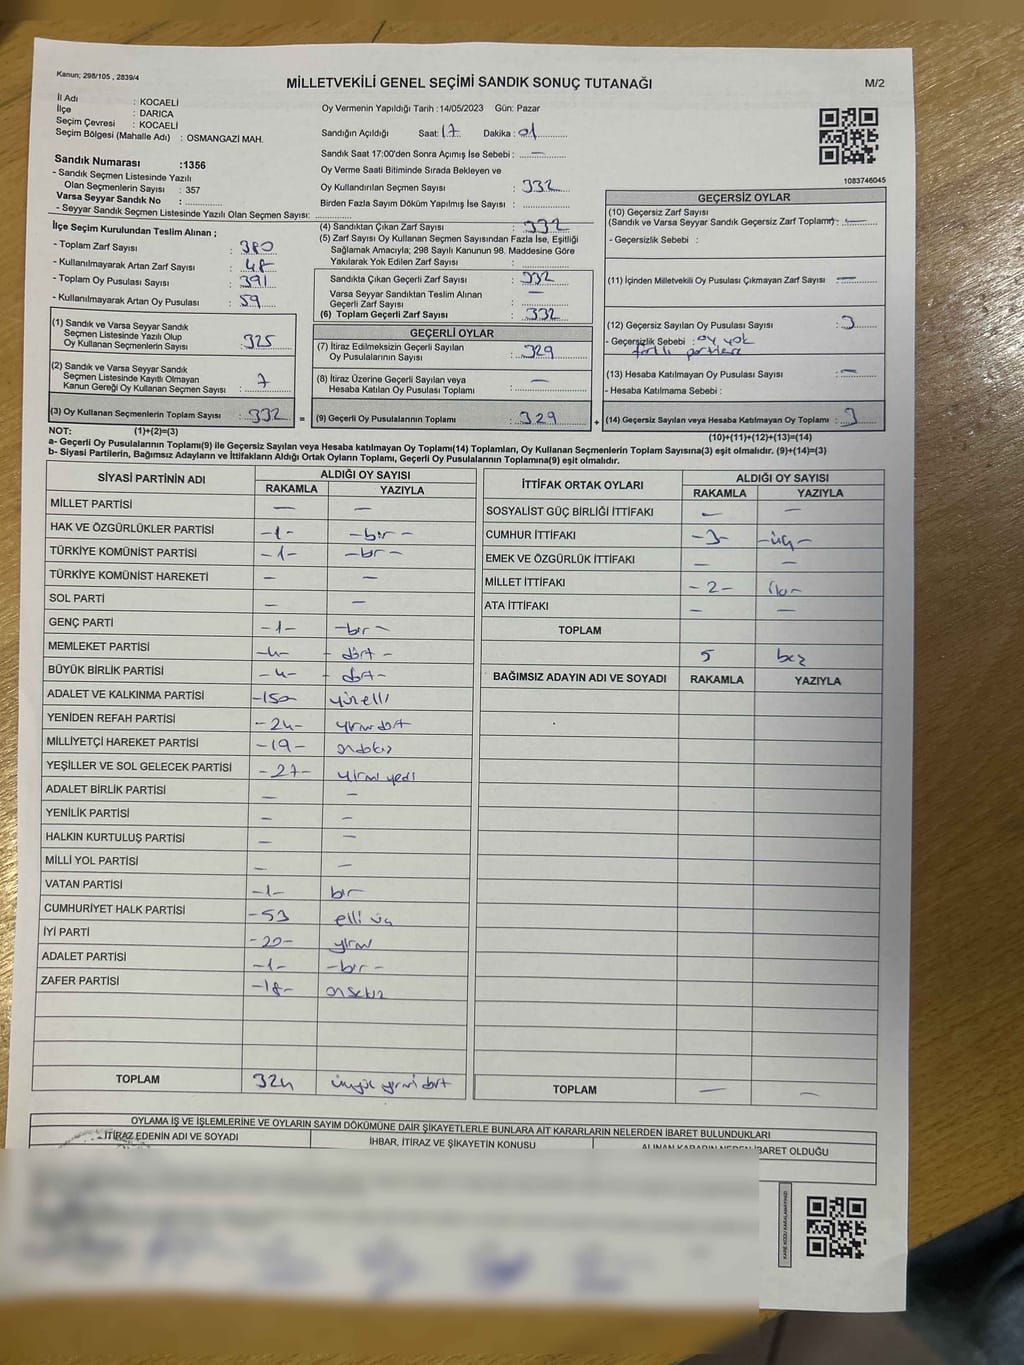 Kanun; 298/105 , 2839/4
MİLLETVEKİLİ GENEL SEÇİMİ SANDIK SONUÇ TUTANAĞI
M/2
İl Adı : KOCAELİ
İlçe : DARICA
Seçim Çevresi : KOCAELİ
Seçim Bölgesi (Mahalle Adı) : OSMANGAZİ MAH.
Oy Vermenin Yapıldığı Tarih : 14/05/2023 Gün: Pazar
Sandığın Açıldığı Saat: 17 Dakika : 01
Sandık Saat 17:00'den Sonra Açımış İse Sebebi : —
Oy Verme Saati Bitiminde Sırada Bekleyen ve
Oy Kullandırılan Seçmen Sayısı : 332
Birden Fazla Sayım Döküm Yapılmış İse Sayısı :
1083746045
Sandık Numarası :1356
- Sandık Seçmen Listesinde Yazılı
Olan Seçmenlerin Sayısı : 357
Varsa Seyyar Sandık No :
- Seyyar Sandık Seçmen Listesinde Yazılı Olan Seçmen Sayısı:
İlçe Seçim Kurulundan Teslim Alınan ;
- Toplam Zarf Sayısı : 380
- Kullanılmayarak Artan Zarf Sayısı : 48
- Toplam Oy Pusulası Sayısı : 391
- Kullanılmayarak Artan Oy Pusulası : 59
(1) Sandık ve Varsa Seyyar Sandık
Seçmen Listesinde Yazılı Olup
Oy Kullanan Seçmenlerin Sayısı : 325
(2) Sandık ve Varsa Seyyar Sandık
Seçmen Listesinde Kayıtlı Olmayan
Kanun Gereği Oy Kullanan Seçmen Sayısı : 7
(3) Oy Kullanan Seçmenlerin Toplam Sayısı : 332 =
(1)+(2)=(3)
(4) Sandıktan Çıkan Zarf Sayısı : 332
(5) Zarf Sayısı Oy Kullanan Seçmen Sayısından Fazla İse, Eşitliği
Sağlamak Amacıyla; 298 Sayılı Kanunun 98. Maddesine Göre
Yakılarak Yok Edilen Zarf Sayısı :
Sandıkta Çıkan Geçerli Zarf Sayısı : 332
Varsa Seyyar Sandıktan Teslim Alınan
Geçerli Zarf Sayısı : —
(6) Toplam Geçerli Zarf Sayısı : 332
GEÇERLİ OYLAR
(7) İtiraz Edilmeksizin Geçerli Sayılan
Oy Pusulalarının Sayısı : 329
(8) İtiraz Üzerine Geçerli Sayılan veya
Hesaba Katılan Oy Pusulası Toplamı : —
(9) Geçerli Oy Pusulalarının Toplamı : 329 +
GEÇERSİZ OYLAR
(10) Geçersiz Zarf Sayısı
(Sandık ve Varsa Seyyar Sandık Geçersiz Zarf Toplamı) : —
- Geçersizlik Sebebi :
(11) İçinden Milletvekili Oy Pusulası Çıkmayan Zarf Sayısı : —
(12) Geçersiz Sayılan Oy Pusulası Sayısı : 3
- Geçersizlik Sebebi : oy yok
(13) Hesaba Katılmayan Oy Pusulası Sayısı : —
- Hesaba Katılmama Sebebi :
(14) Geçersiz Sayılan veya Hesaba Katılmayan Oy Toplamı : 3
(10)+(11)+(12)+(13)=(14)
NOT:
a- Geçerli Oy Pusulalarının Toplamı(9) ile Geçersiz Sayılan veya Hesaba katılmayan Oy Toplamı(14) Toplamları, Oy Kullanan Seçmenlerin Toplam Sayısına(3) eşit olmalıdır. (9)+(14)=(3)
b- Siyasi Partilerin, Bağımsız Adayların ve İttifakların Aldığı Ortak Oyların Toplamı, Geçerli Oy Pusulalarının Toplamına(9) eşit olmalıdır.
SİYASİ PARTİNİN ADI ALDIĞI OY SAYISI
RAKAMLA YAZIYLA
MİLLET PARTİSİ — —
HAK VE ÖZGÜRLÜKLER PARTİSİ -1- -bir-
TÜRKİYE KOMÜNİST PARTİSİ -1- -bir-
TÜRKİYE KOMÜNİST HAREKETİ — —
SOL PARTİ — —
GENÇ PARTİ -1- -bir-
MEMLEKET PARTİSİ -4- - dört -
BÜYÜK BİRLİK PARTİSİ -4- - dört-
ADALET VE KALKINMA PARTİSİ -150 yüzelli
YENİDEN REFAH PARTİSİ -24- yirmi dört
MİLLİYETÇİ HAREKET PARTİSİ -19- ondokuz
YEŞİLLER VE SOL GELECEK PARTİSİ -27- yirmi yedi
ADALET BİRLİK PARTİSİ — —
YENİLİK PARTİSİ — —
HALKIN KURTULUŞ PARTİSİ — —
MİLLİ YOL PARTİSİ — —
VATAN PARTİSİ -1- bir
CUMHURİYET HALK PARTİSİ -53 elli üç
İYİ PARTİ -20- yirmi
ADALET PARTİSİ -1- -bir-
ZAFER PARTİSİ -18- onsekiz
TOPLAM 324 üçyüz yirmi dört
İTTİFAK ORTAK OYLARI ALDIĞI OY SAYISI
RAKAMLA YAZIYLA
SOSYALİST GÜÇ BİRLİĞİ İTTİFAKI — —
CUMHUR İTTİFAKI -3- -üç-
EMEK VE ÖZGÜRLÜK İTTİFAKI — —
MİLLET İTTİFAKI -2- iki-
ATA İTTİFAKI — —
TOPLAM
5 beş
BAĞIMSIZ ADAYIN ADI VE SOYADI RAKAMLA YAZIYLA
TOPLAM — —
OYLAMA İŞ VE İŞLEMLERİNE VE OYLARIN SAYIM DÖKÜMÜNE DAİR ŞİKAYETLERLE BUNLARA AİT KARARLARIN NELERDEN İBARET BULUNDUKLARI
İTİRAZ EDENİN ADI VE SOYADI
İHBAR, İTİRAZ VE ŞİKAYETİN KONUSU
ALINAN KARARIN NEDEN İBARET OLDUĞU